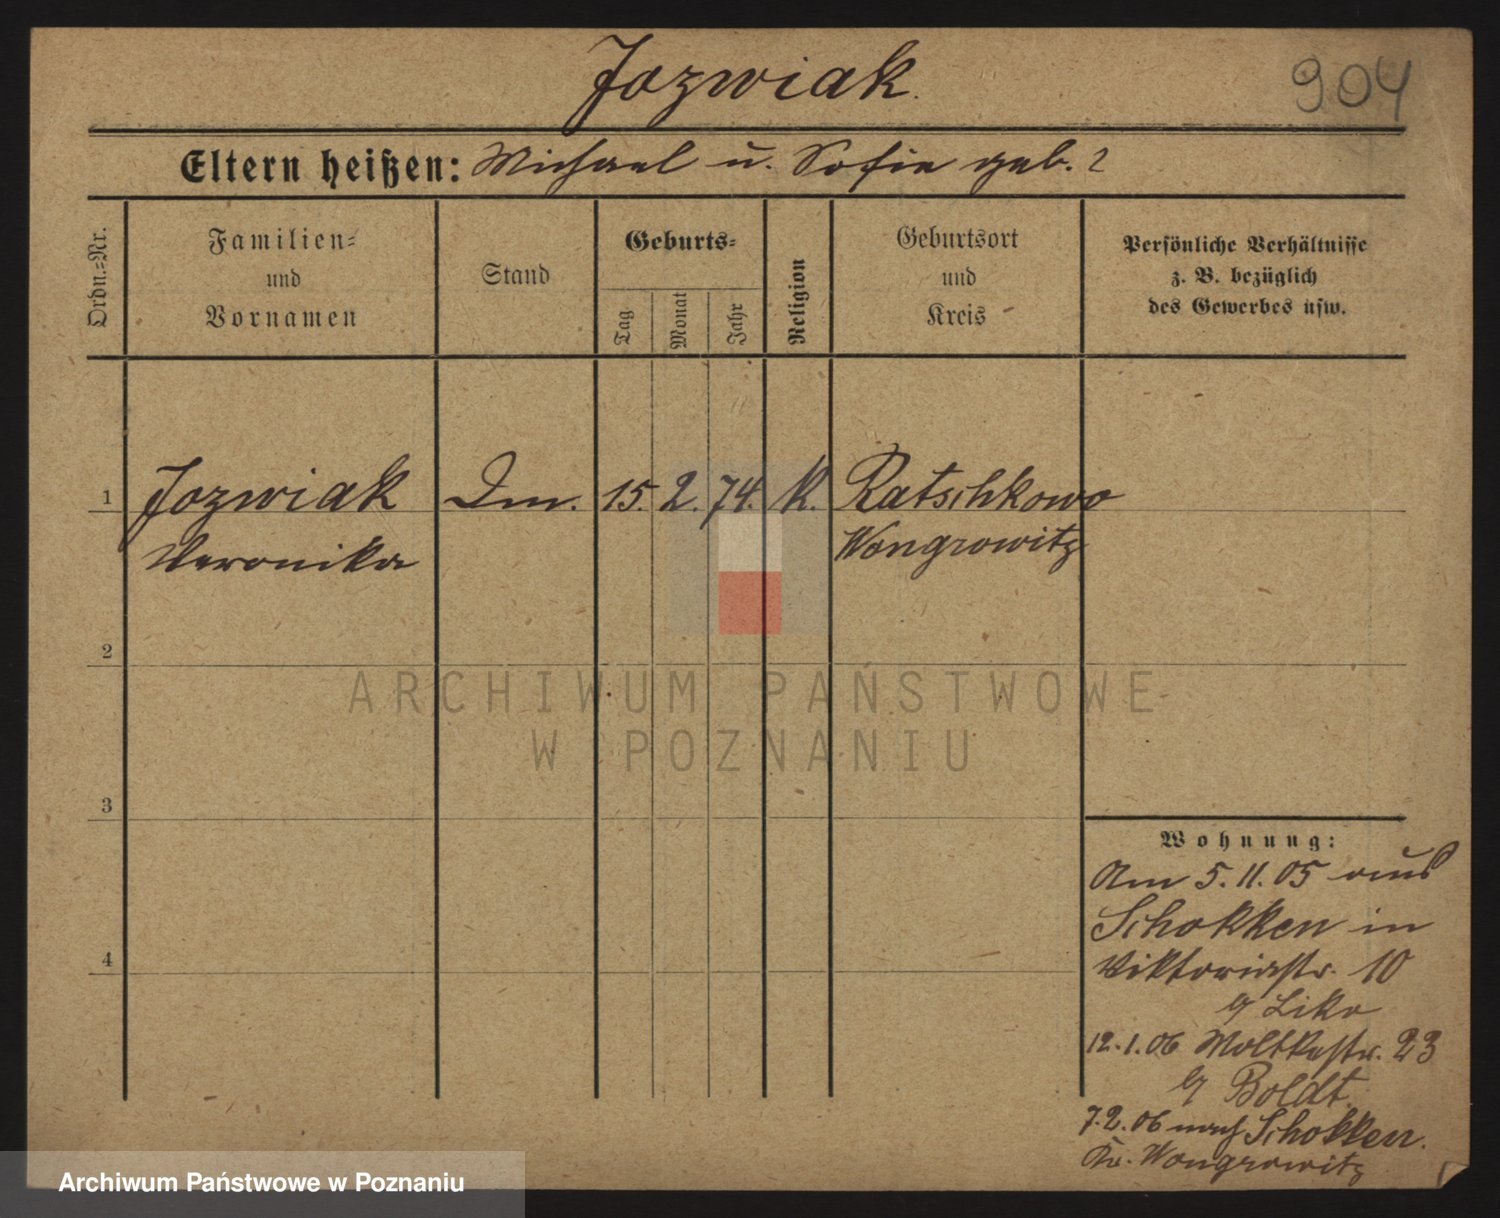 Jozwiak.
904
Eltern heißen: Michael u. Sofie geb. ?
Ordn.-Nr.
Familien- und Vornamen
Stand
Geburts-
Tag
Monat
Jahr
Religion
Geburtsort und Kreis
Persönliche Verhältnisse
z. B. bezüglich
des Gewerbes usw.
1 Jozwiak 15. 2. 74. K. Ratschkowo
Veronika Wongrowitz
2
3
4
Wohnung:
Am 5.11.05 aus
Schokken in
Viktoriastr. 10
b/ Liko
12.1.06 Moltkestr. 23
b/ Boldt.
7.2.06 nach Schokken.
Kr. Wongrowitz
ARCHIWUM PAŃSTWOWE
W POZNANIU
Archiwum Państwowe w Poznaniu